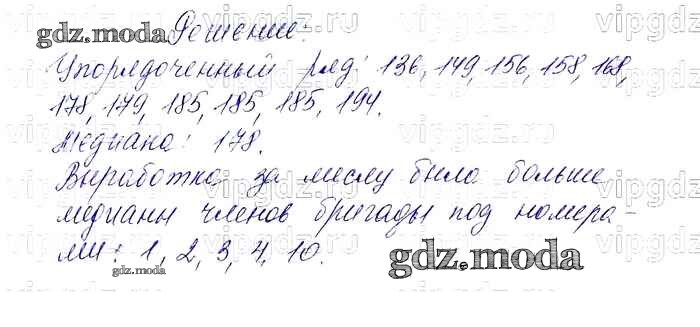 Решение:
Упорядоченный ряд: 136, 149, 156, 158, 168,
178, 179, 185, 185, 185, 194.
Медиана: 178.
Выработка за месяц была больше
медианы членов бригады под номера-
ми: 1, 2, 3, 4, 10.
gdz.moda
gdz.moda
gdz.moda
vipgdz.ru